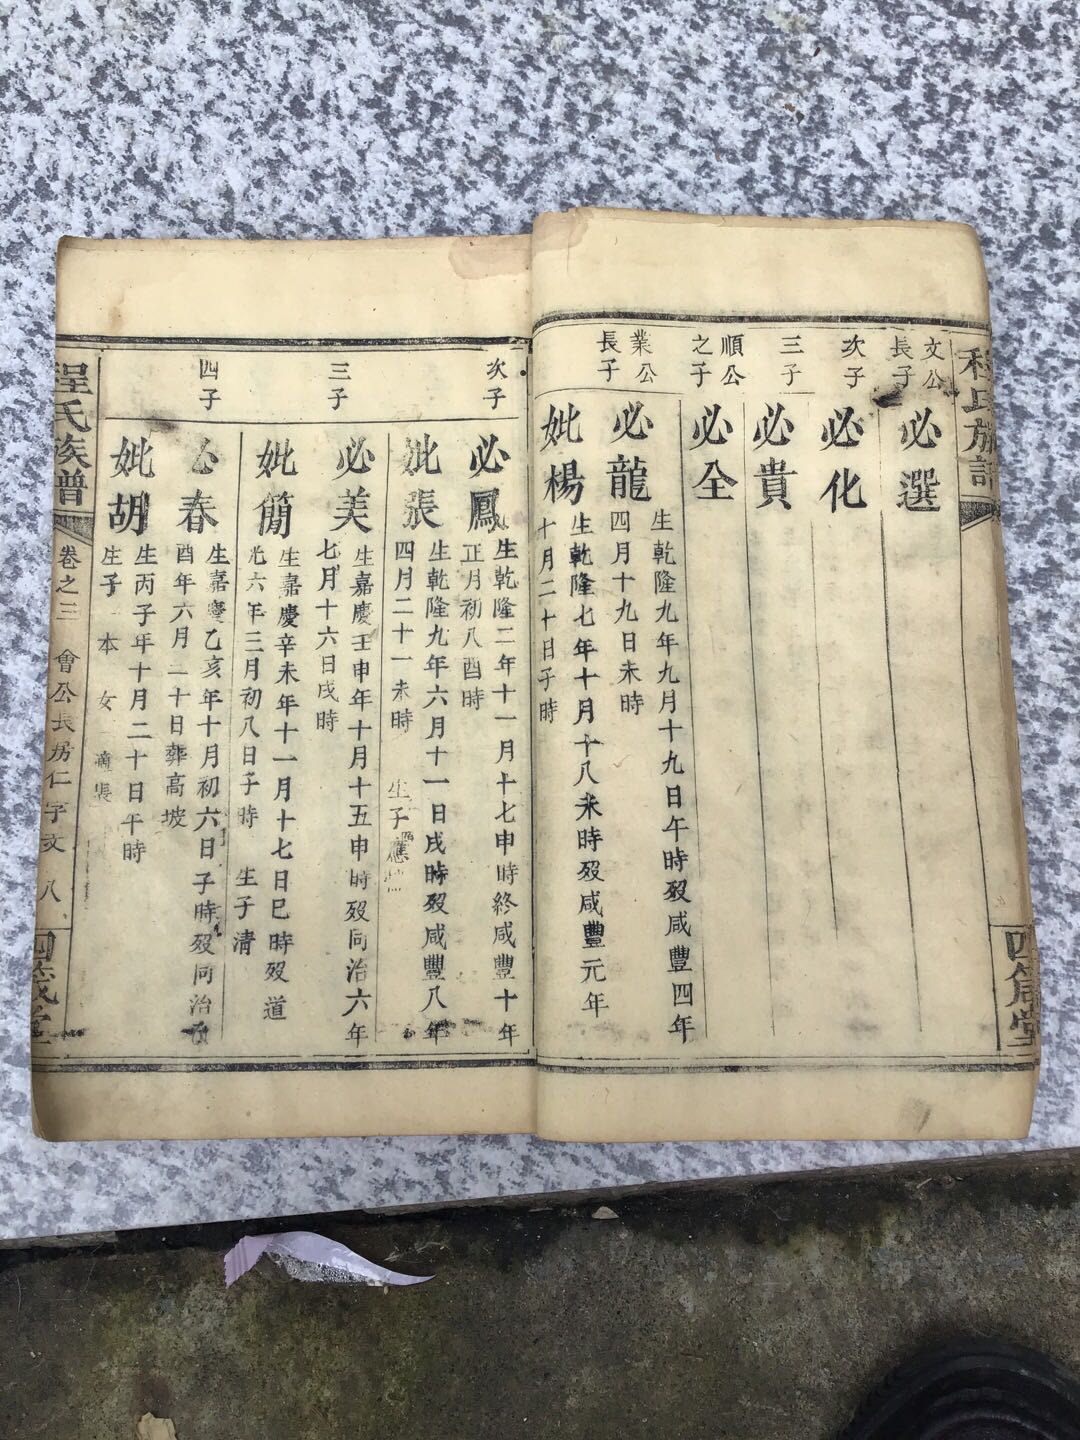 程氏族譜
四箴堂
文公長子
必選
次子
必化
三子
必貴
順公之子
必全
業公長子
必龍
生乾隆九年九月十九日午時歿咸豐四年
四月十九日未時
妣楊
生乾隆七年十月十八未時歿咸豐元年
十月二十日子時
次子
必鳳
生乾隆二年十一月十七申時終咸豐十年
正月初八酉時
妣張
生乾隆九年六月十一日戌時歿咸豐八年
四月二十一未時 生子應
三子
必美
生嘉慶壬申年十月十五申時歿同治六年
七月十六日戌時
妣簡
生嘉慶辛未年十一月十七日巳時歿道
光六年三月初八日子時 生子清
四子
必春
生嘉慶乙亥年十月初六日子時歿同治
酉年六月二十日葬高坡
妣胡
生丙子年十月二十日午時
生子一本 女一適張
程氏族譜
卷之三 會公長房仁字文 八
四箴堂